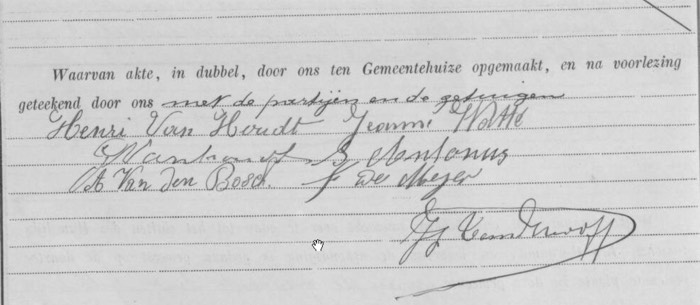 Waarvan akte, in dubbel, door ons ten Gemeentehuize opgemaakt, en na voorlezing
geteekend door ons met de partijen en de getuigen
Henri Van Houdt Jeanne
S Antonus
A Van Den Bosch. F De Meyer